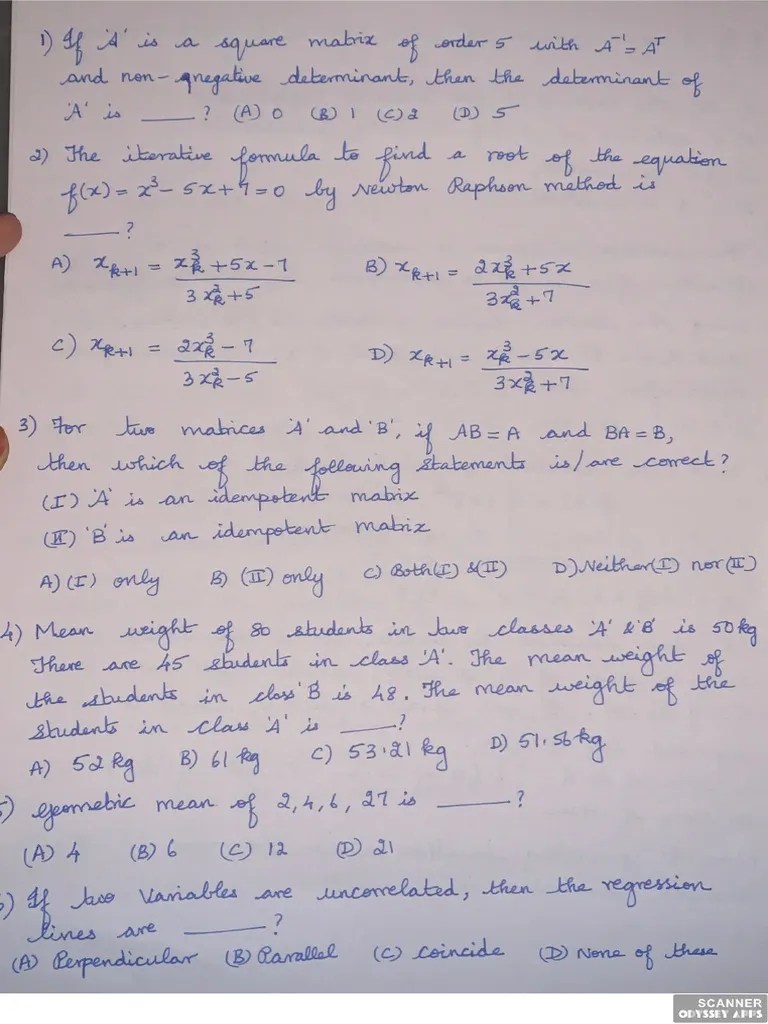 1) If 'A' is a square matrix of order 5 with A⁻¹ = Aᵀ
and non-negative determinant, then the determinant of
'A' is ____? (A) 0 (B) 1 (C) 2 (D) 5
2) The iterative formula to find a root of the equation
f(x) = x³ - 5x + 7 = 0 by Newton Raphson method is
____?
A) xₖ₊₁ = (xₖ³ + 5x - 7) / (3xₖ² + 5) B) xₖ₊₁ = (2xₖ³ + 5x) / (3xₖ² + 7)
C) xₖ₊₁ = (2xₖ³ - 7) / (3xₖ² - 5) D) xₖ₊₁ = (xₖ³ - 5x) / (3xₖ² + 7)
3) For two matrices 'A' and 'B', if AB = A and BA = B,
then which of the following statements is/are correct?
(I) 'A' is an idempotent matrix
(II) 'B' is an idempotent matrix
A) (I) only B) (II) only C) Both (I) & (II) D) Neither (I) nor (II)
4) Mean weight of 80 students in two classes 'A' & 'B' is 50 kg
There are 45 students in class 'A'. The mean weight of
the students in class 'B' is 48. The mean weight of the
students in class 'A' is ____?
A) 52 kg B) 61 kg C) 53.21 kg D) 51.56 kg
5) Geometric mean of 2, 4, 6, 27 is ____?
(A) 4 (B) 6 (C) 12 (D) 21
) If two variables are uncorrelated, then the regression
lines are ____?
(A) Perpendicular (B) Parallel (C) Coincide (D) None of these
SCANNER
ODYSSEY APPS